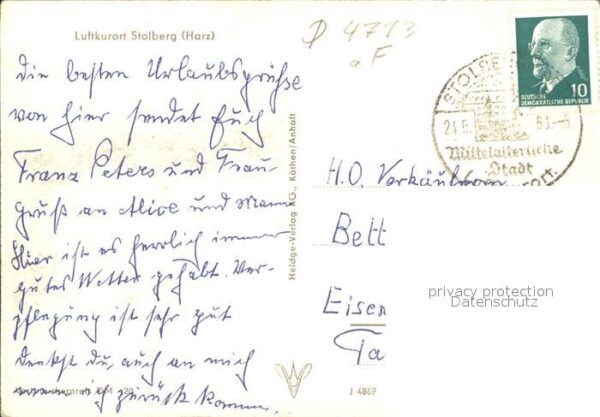 Luftkurort Stolberg (Harz)
die besten Urlaubsgrüße
von hier sendet Euch
Franz Peters und Frau
gruß an Alice und Mann
Hier ist es herrlich immer
gutes Wetter gehabt. Ver-
pflegung ist sehr gut
Denkst du, auch an mich
wenn ich zurück komme.
Heldge-Verlag KG., Köthen/Anhalt
J 4869
D 4713
a F
STOLBE
23.6. 63.-8
Mittelalterliche
Stadt
DEUTSCHE
DEMOKRATISCHE REPUBLIK
10
H.O. Verkäuferin
Bett
Eisen
Ta
privacy protection
Datenschutz